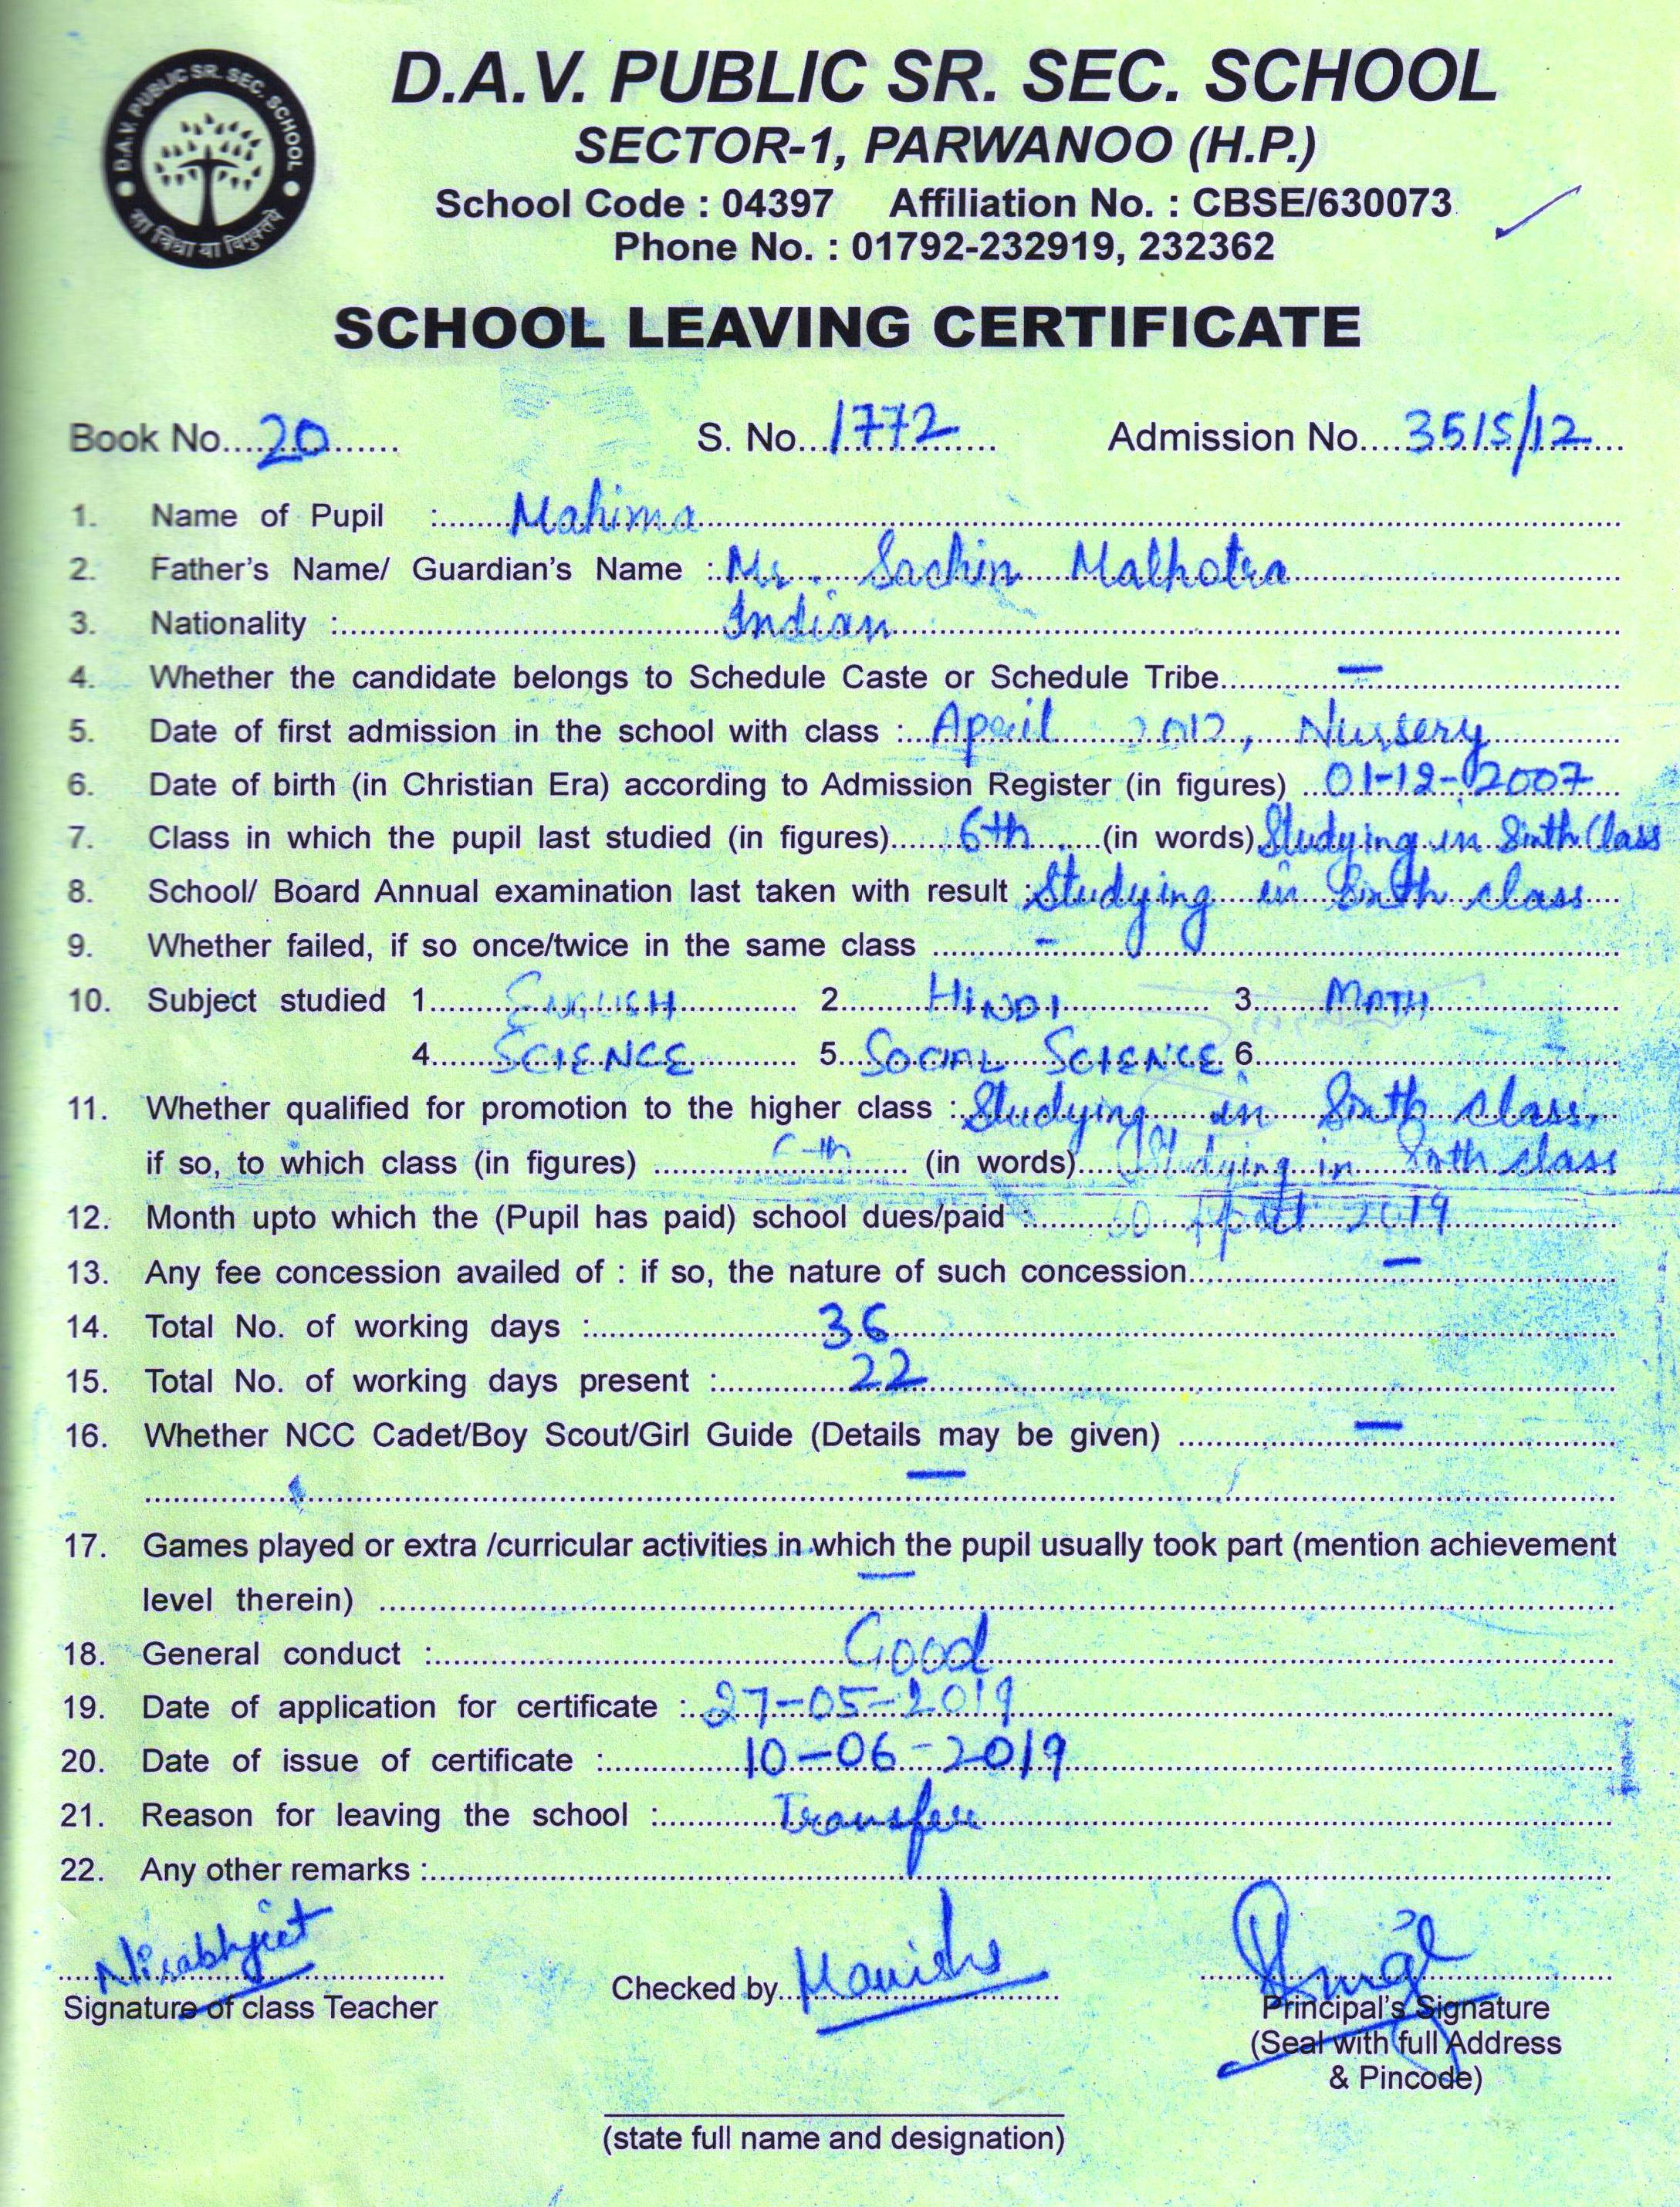 D.A.V. PUBLIC SR. SEC. SCHOOL
D.A.V. PUBLIC SR. SEC. SCHOOL
SECTOR-1, PARWANOO (H.P.)
School Code : 04397 Affiliation No. : CBSE/630073
Phone No. : 01792-232919, 232362
SCHOOL LEAVING CERTIFICATE
Book No. 20 S. No. 1772 Admission No. 3515/12
1. Name of Pupil : Mahima
2. Father's Name/ Guardian's Name : Mr. Sachin Malhotra
3. Nationality : Indian
4. Whether the candidate belongs to Schedule Caste or Schedule Tribe –
5. Date of first admission in the school with class : April 2012, Nursery
6. Date of birth (in Christian Era) according to Admission Register (in figures) 01-12-2007
7. Class in which the pupil last studied (in figures) 6th (in words) Studying in Sixth Class
8. School/ Board Annual examination last taken with result : Studying in Sixth class
9. Whether failed, if so once/twice in the same class -
10. Subject studied 1. ENGLISH 2. HINDI 3. MATH
4. SCIENCE 5. SOCIAL SCIENCE 6.
11. Whether qualified for promotion to the higher class : Studying in Sixth class,
if so, to which class (in figures) 6th (in words) Studying in Sixth class
12. Month upto which the (Pupil has paid) school dues/paid : April 2019
13. Any fee concession availed of : if so, the nature of such concession –
14. Total No. of working days : 36
15. Total No. of working days present : 22
16. Whether NCC Cadet/Boy Scout/Girl Guide (Details may be given) –
–
17. Games played or extra /curricular activities in which the pupil usually took part (mention achievement
level therein) –
18. General conduct : Good
19. Date of application for certificate : 27-05-2019
20. Date of issue of certificate : 10-06-2019
21. Reason for leaving the school : Transfer
22. Any other remarks :
Signature of class Teacher
Checked by Manisha
Principal's Signature
(Seal with full Address
& Pincode)
(state full name and designation)